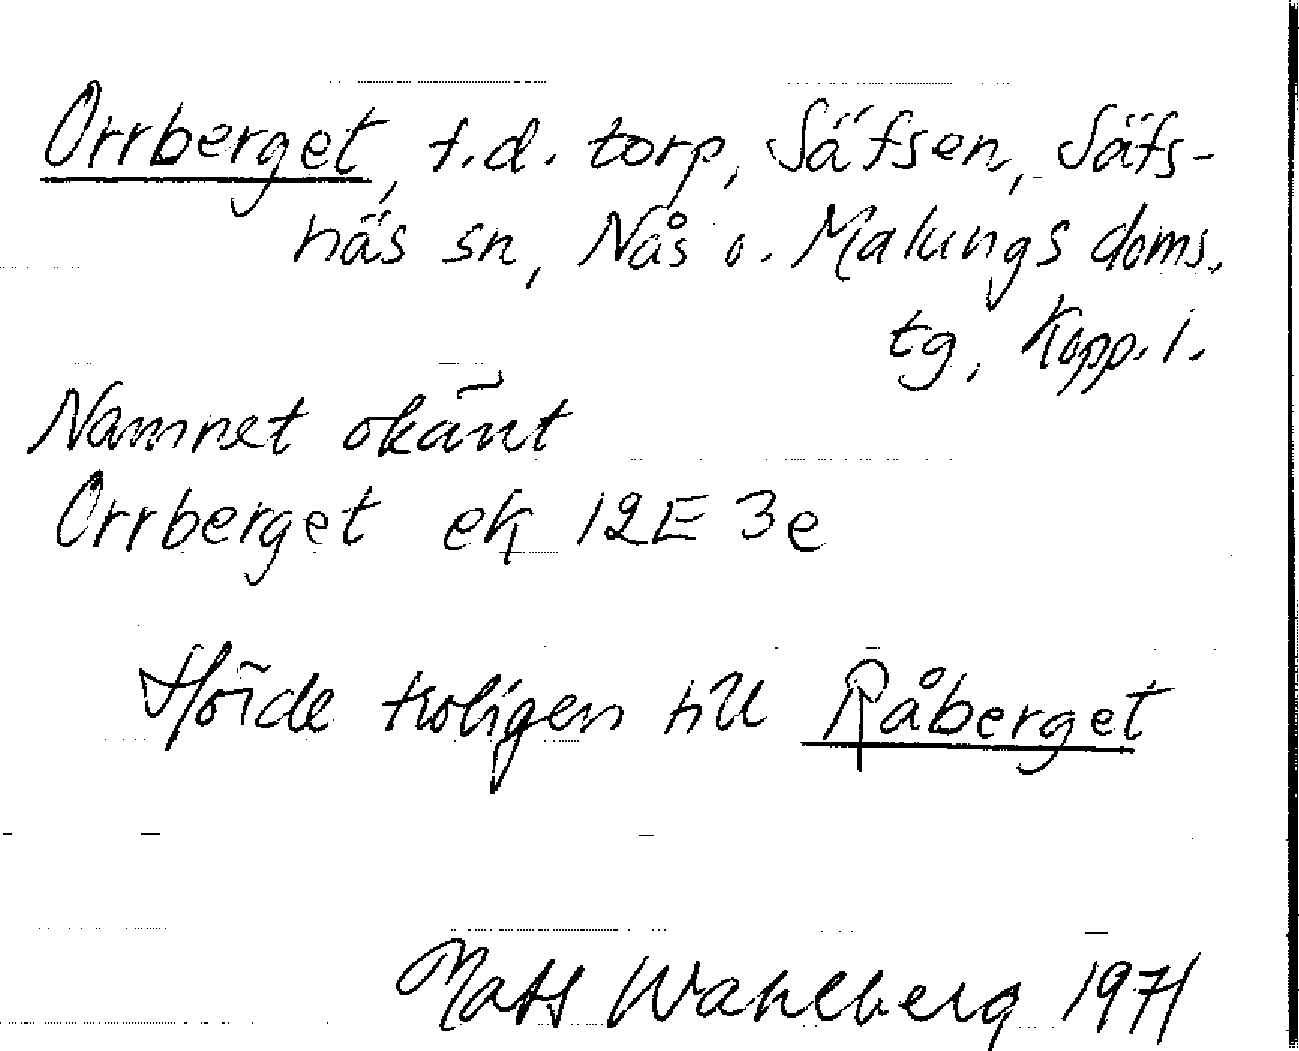 Orrberget, f.d. torp, Säfsen, Säfs-
näs sn, Nås o. Malungs doms.
tg, Kopp. l.
Namnet okänt
Orrberget ek 12E 3e
Hörde troligen till Råberget
Mats Wahlberg 1971